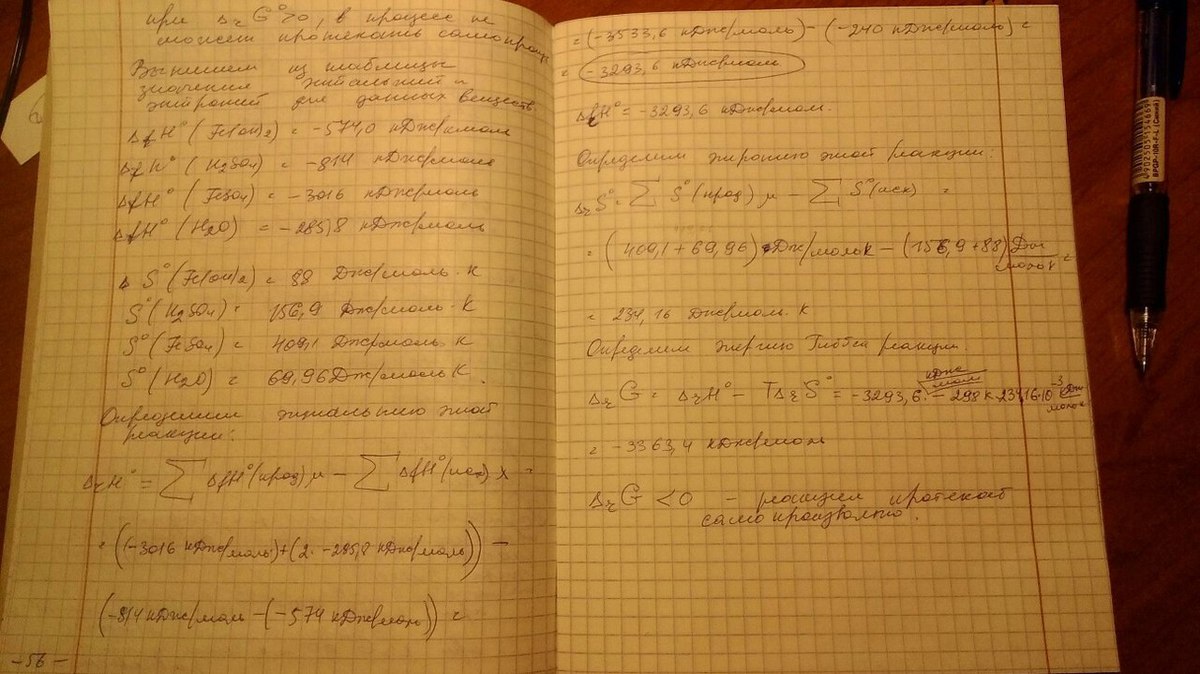 при ΔrG°>0, в процесс не
может протекать самопроиз
Выпишем из таблицы
значения энтальпий и
энтропий для данных веществ
ΔfH° (Fe(OH)2) = -574,0 кДж/моль
ΔfH° (H2SO4) = -814 кДж/моль
ΔfH° (FeSO4) = -3016 кДж/моль
ΔfH° (H2O) = -285,8 кДж/моль
Δ S° (Fe(OH)2) = 88 Дж/моль·К
S° (H2SO4) = 156,9 Дж/моль·К
S° (FeSO4) = 409,1 Дж/моль·К
S° (H2O) = 69,96 Дж/моль К
Определим энтальпию этой
реакции:
ΔrH° = ∑ ΔfH°(прод) μ - ∑ ΔfH°(исх) λ =
= ((-3016 кДж/моль)+(2·-285,8 кДж/моль)) -
(-814 кДж/моль -(-574 кДж/моль)) =
-56-
= (-3533,6 кДж/моль) - (-240 кДж/моль) =
= -3293,6 кДж/моль
ΔrH° = -3293,6 кДж/моль.
Определим энтропию этой реакции:
ΔrS° = ∑ S°(прод) μ - ∑ S°(исх) =
= (409,1 + 69,96) Дж/моль К - (156,9 + 88) Дж/моль К =
= 234,16 Дж/моль·К
Определим энергию Гиббса реакции.
ΔrG = ΔrH° - TΔrS° = -3293,6 кДж/моль - 298 К·234,16·10⁻³ кДж/моль К
= -3363,4 кДж/моль
ΔrG < 0 - реакция протекает
самопроизвольно.
4902505154669
BPGP-10R-F-L (Синий)